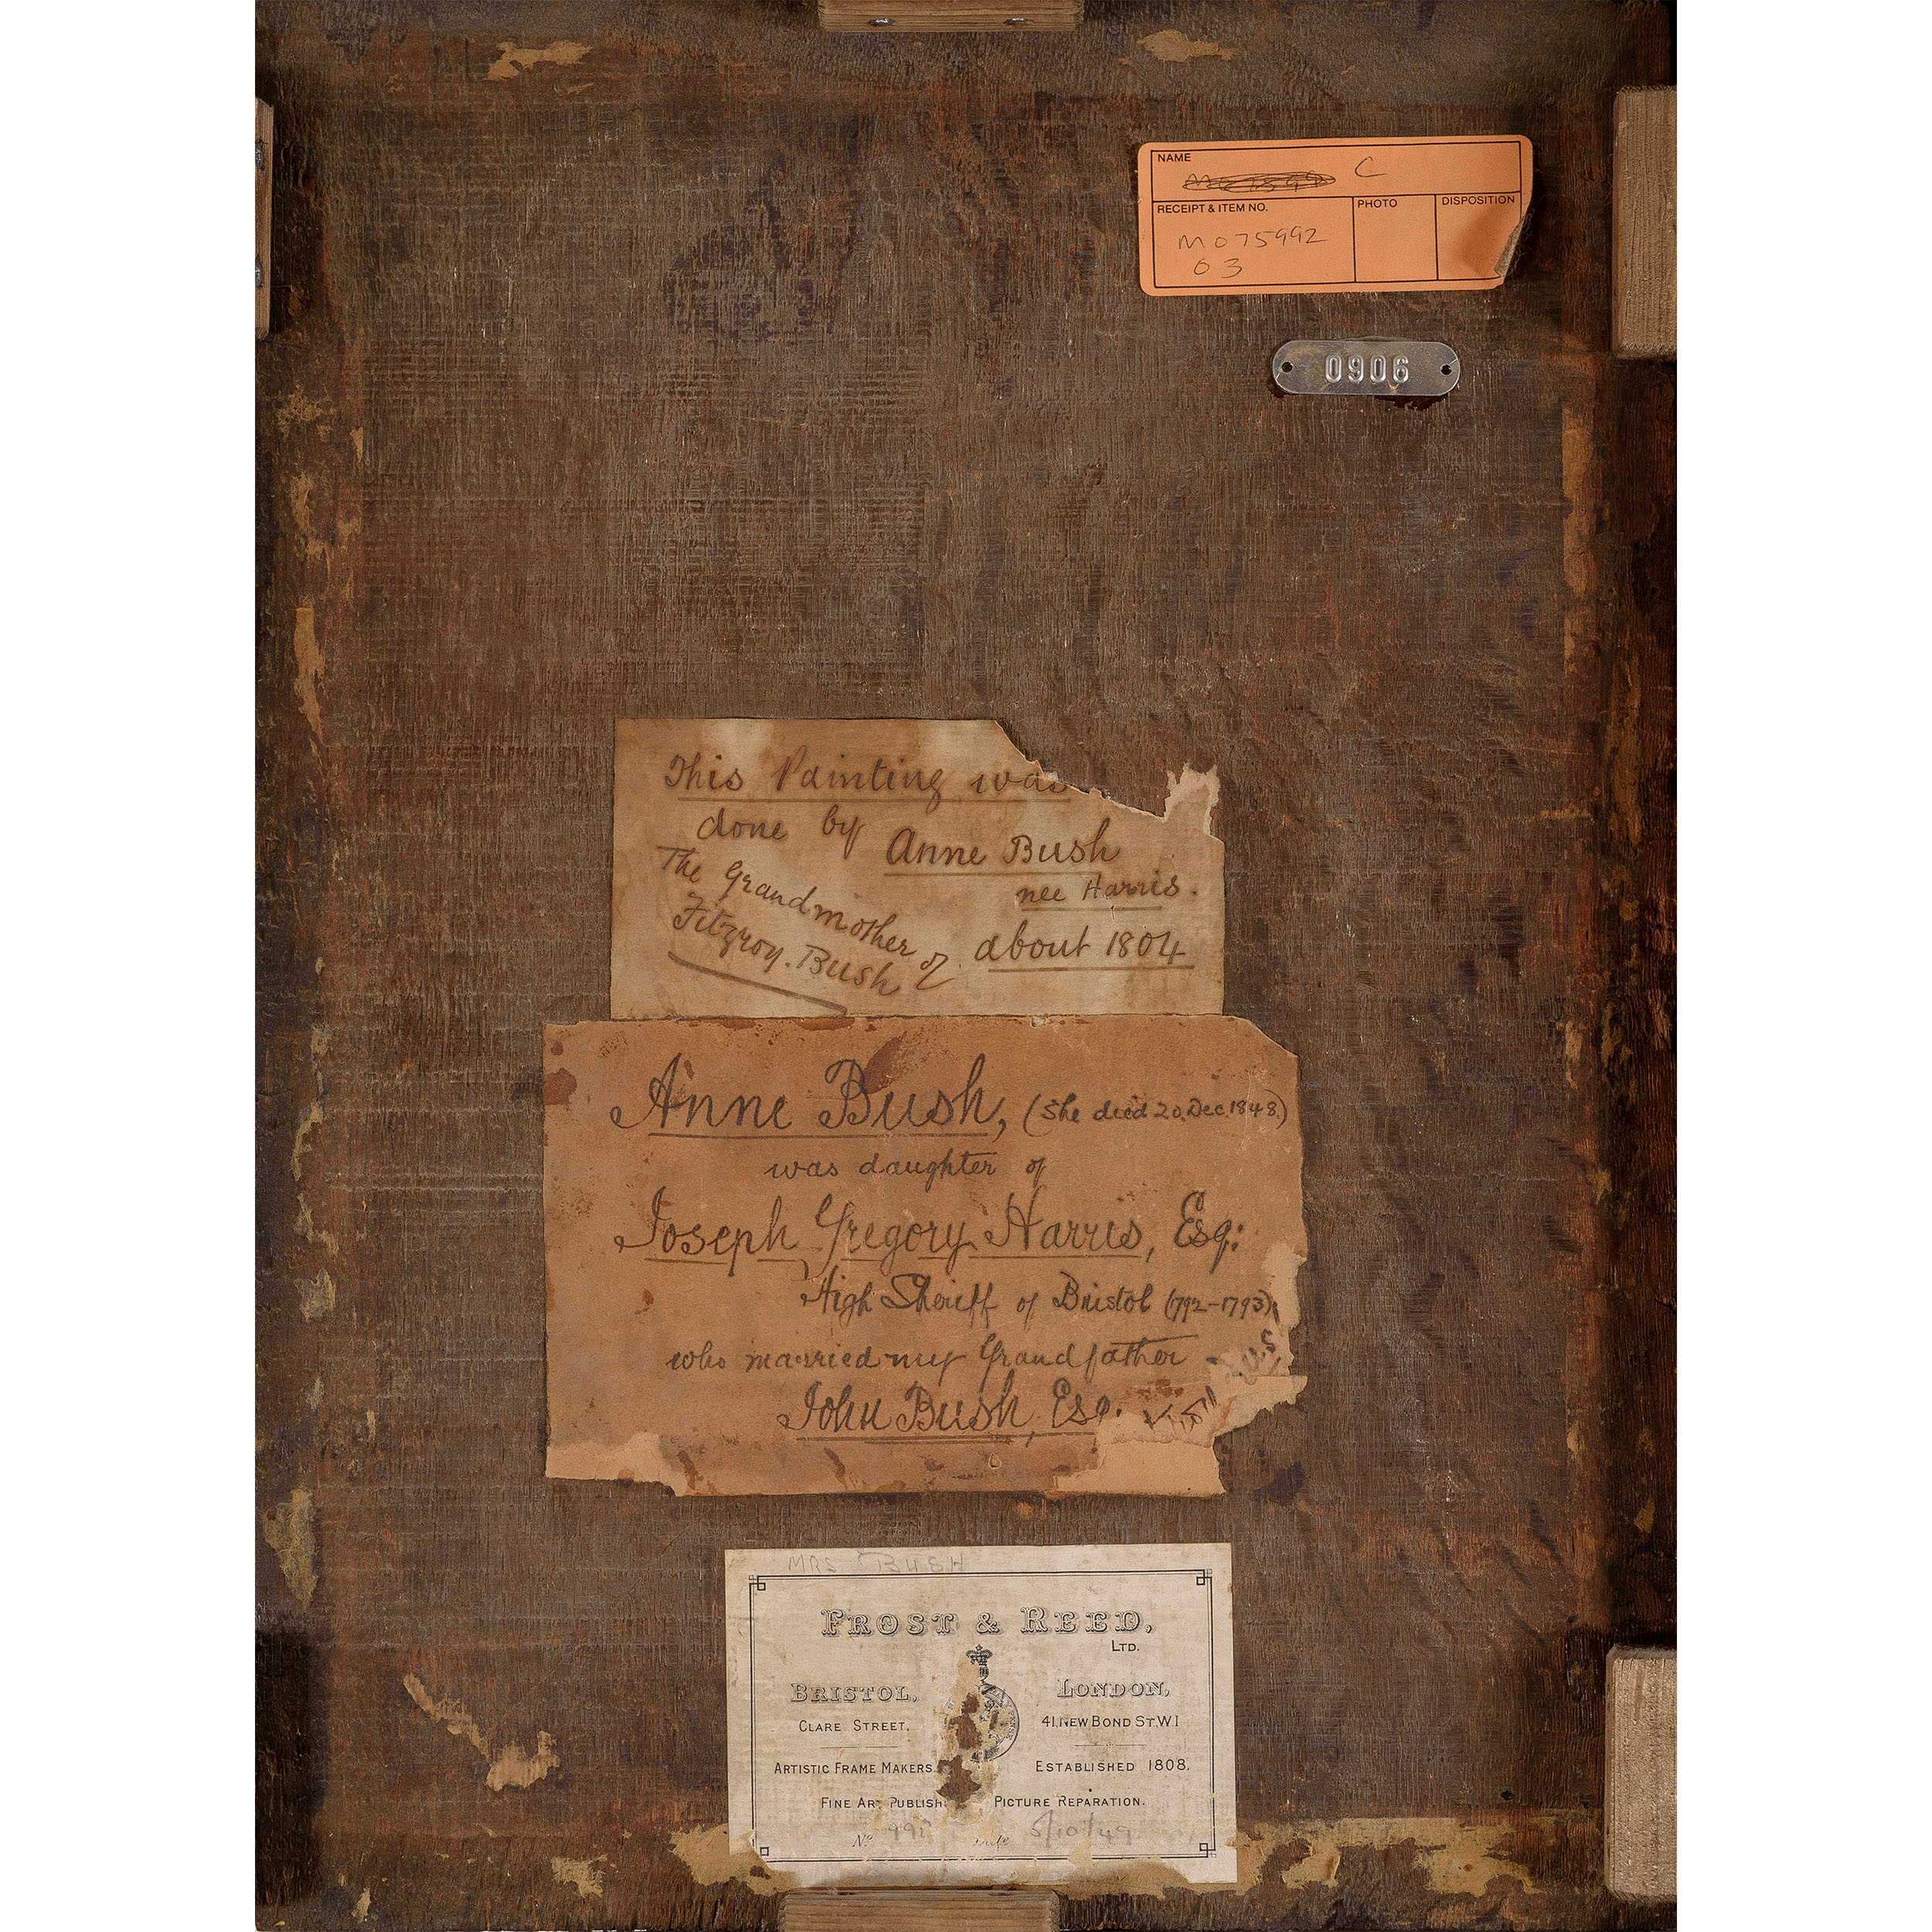 NAME
C
RECEIPT & ITEM NO. PHOTO DISPOSITION
M075992
03
0906
This Painting was
done by Anne Bush
nee Harris.
The Grandmother of
Fitzroy. Bush
about 1804
Anne Bush, (She died 20, Dec. 1848.)
was daughter of
Joseph Gregory Harris, Esq:
High Sheriff of Bristol (1792-1793),
who married my Grandfather
John Bush, Esq.
MRS BUSH
FROST & REED,
LTD.
BRISTOL, LONDON,
CLARE STREET, 41, NEW BOND ST. W.1
ARTISTIC FRAME MAKERS. ESTABLISHED 1808.
FINE ART PUBLISH PICTURE REPARATION.
No. 5/10/49